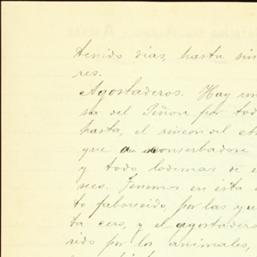 tenido dias, hasta sin
res.
Agostaderos. Hay un
sa del Señor por tod
hasta, el rincon del
que a conserbadose
y todo lodemas si e
seco. Tenemos en esta
to faborecido, por las
ta cero, y el agostadero
rido por los animales,